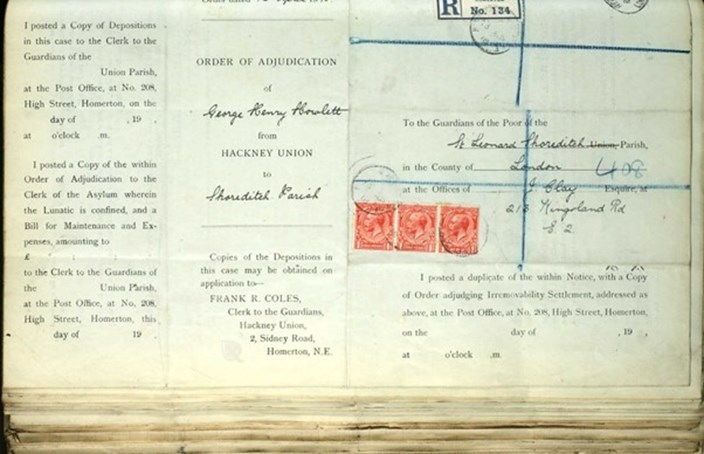 I posted a Copy of Depositions
in this case to the Clerk to the
Guardians of the
Union Parish,
at the Post Office, at No. 208,
High Street, Homerton, on the
day of , 19 .
at o'clock .m.
I posted a Copy of the within
Order of Adjudication to the
Clerk of the Asylum wherein
the Lunatic is confined, and a
Bill for Maintenance and Ex-
penses, amounting to
£ : :
to the Clerk to the Guardians of
the Union Parish,
at the Post Office, at No. 208,
High Street, Homerton, this
day of 19 .
ORDER OF ADJUDICATION
of
George Henry Howlett
from
HACKNEY UNION
to
Shoreditch Parish
Copies of the Depositions in
this case may be obtained on
application to—
FRANK R. COLES,
Clerk to the Guardians,
Hackney Union,
2, Sidney Road,
Homerton, N.E.
R
No. 134
To the Guardians of the Poor of the
St Leonard Shoreditch Union, Parish,
in the County of London 408
at the Offices of Clay Esquire, at
213 Kingsland Rd
E. 2
I posted a duplicate of the within Notice, with a Copy
of Order adjudging Irremovability Settlement, addressed as
above, at the Post Office, at No. 208, High Street, Homerton,
on the day of , 19 .
at o'clock .m.